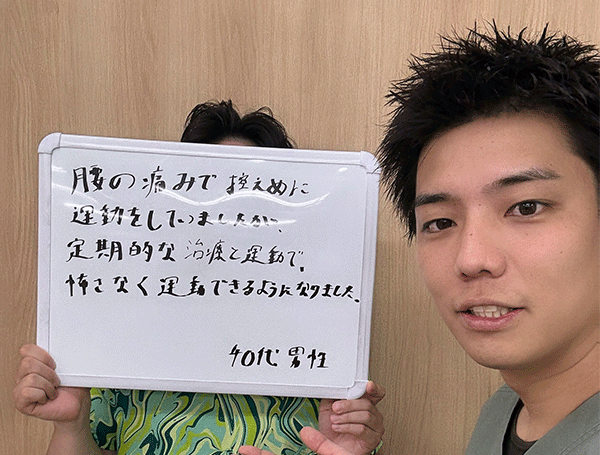 腰の痛みで控えめに
運動をしていましたが、
定期的な治療と運動で、
怖さなく運動できるようになりました。
40代男性